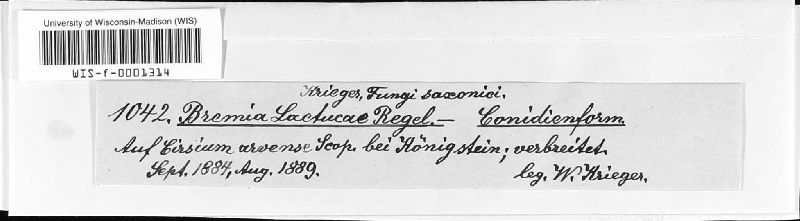 University of Wisconsin-Madison (WIS)
WIS-f-0001314
Krieger, Fungi saxonici.
1042. Bremia Lactucae Regel. — Conidienform.
Auf Cirsium arvense Scop. bei Königstein; verbreitet.
Sept. 1884, Aug. 1889.
leg. W. Krieger.